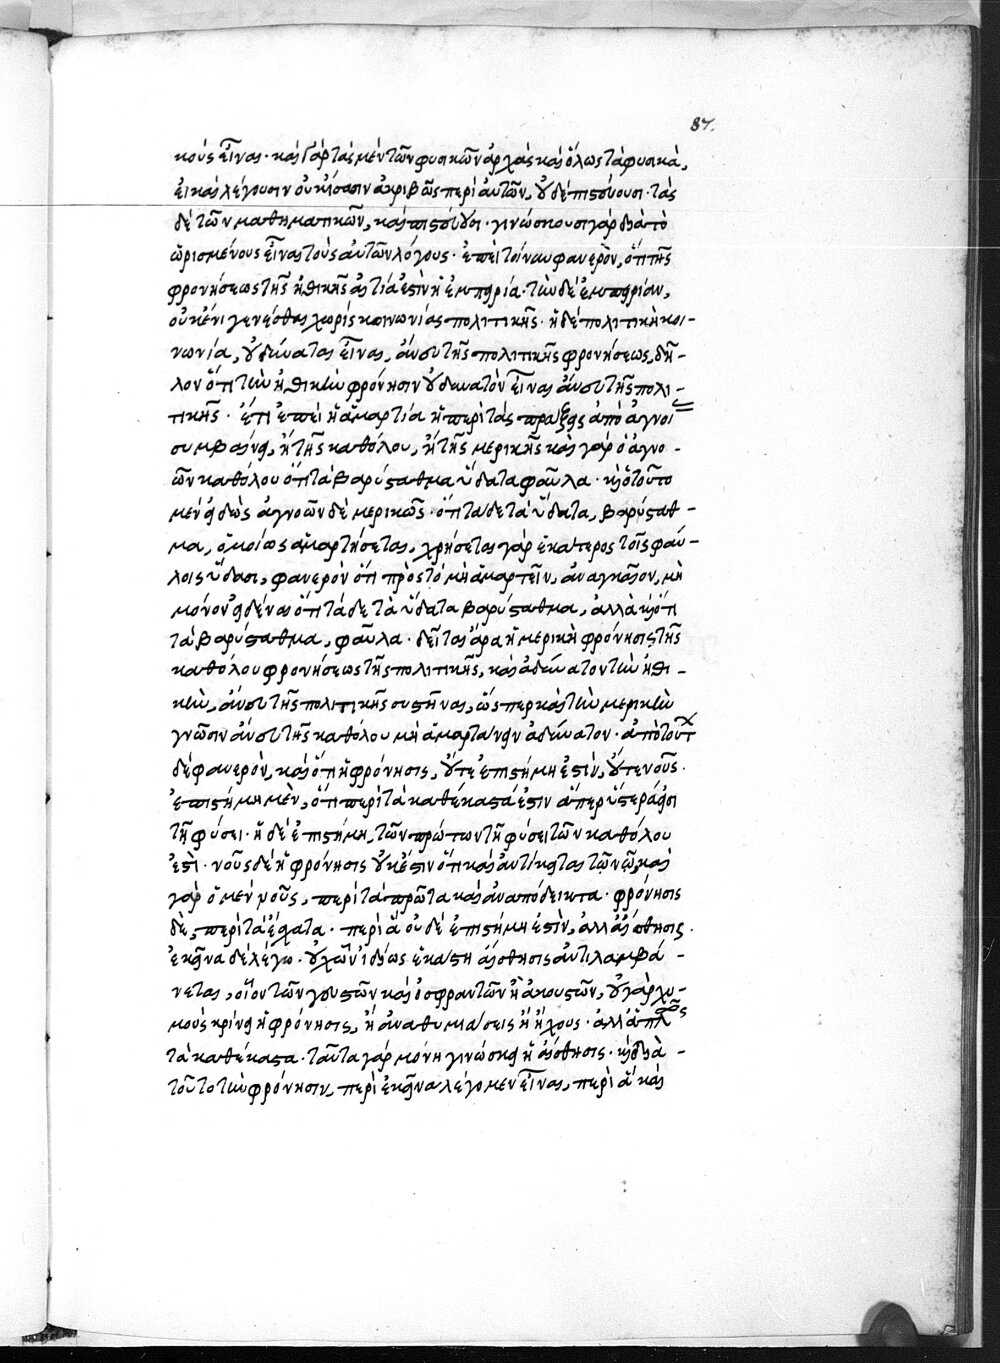 87.
κοὺς εἶναι· καὶ γὰρ τὰς μὲν τῶν φυσικῶν ἀρχὰς καὶ ὅλως τὰ φυσικὰ,
εἰ καὶ λέγουσιν οὐκ ἴσασιν ἀκριβῶς περὶ αὐτῶν, οὐδὲ πιστεύουσι· τὰς
δὲ τῶν μαθηματικῶν, καὶ πιστεύουσι· γινώσκουσι γὰρ διὰ τὸ
ὡρισμένους εἶναι τοὺς αὐτῶν λόγους· ἐπεὶ τοίνυν φανερὸν, ὅτι τῆς
φρονήσεως τῆς ἠθικῆς αἰτία ἐστὶν ἡ ἐμπειρία· τὴν δὲ ἐμπειρίαν,
οὐκ ἔνι γενέσθαι χωρὶς κοινωνίας πολιτικῆς· ἡ δὲ πολιτικὴ κοι-
νωνία, οὐ δύναται εἶναι, ἄνευ τῆς πολιτικῆς φρονήσεως, δῆ-
λον ὅτι τὴν ἠθικὴν φρόνησιν οὐ δυνατὸν εἶναι ἄνευ τῆς πολι-
τικῆς· ἔτι ἐπεὶ ἡ ἁμαρτία ἡ περὶ τὰς πράξεις ἀπὸ ἀγνοί
συμβαίνει, ἢ τῆς καθόλου, ἢ τῆς μερικῆς καὶ γὰρ ὁ ἀγνο-
ῶν καθόλου ὅτι τὰ βαρύσταθμα ὕδατα φαῦλα· καὶ ὁ τοῦτο
μὲν εἰδὼς ἀγνοῶν δὲ μερικῶς· ὅτι τάδε τὰ ὕδατα, βαρύσταθ-
μα, ὁμοίως ἁμαρτήσεται, χρήσεται γὰρ ἑκάτερος τοῖς φαύ-
λοις ὕδασι, φανερὸν ὅτι πρὸς τὸ μὴ ἁμαρτεῖν, ἀναγκαῖον, μὴ
μόνον εἰδέναι ὅτι τάδε τὰ ὕδατα βαρύσταθμα, ἀλλὰ καὶ ὅτι
τὰ βαρύσταθμα, φαῦλα· δεῖται ἄρα ἡ μερικὴ φρόνησις τῆς
καθόλου φρονήσεως τῆς πολιτικῆς, καὶ ἀδύνατον τὴν ἠθι-
κὴν, ἄνευ τῆς πολιτικῆς συστῆναι, ὥσπερ καὶ τὴν μερικὴν
γνῶσιν ἄνευ τῆς καθόλου μὴ ἁμαρτάνειν ἀδύνατον· ἀπὸ τούτ
δὲ φανερὸν, καὶ ὅτι ἡ φρόνησις, οὔτε ἐπιστήμη ἐστὶν, οὔτε νοῦς·
ἐπιστήμη μὲν, ὅτι περὶ τὰ καθέκαστά ἐστιν ἅπερ ὕστερά εἰσι
τῇ φύσει· ἡ δὲ ἐπιστήμη, τῶν πρώτων τῇ φύσει τῶν καθόλου
ἐστὶ· νοῦς δὲ ἡ φρόνησις οὐκ ἔστιν ὅτι καὶ ἀντίκειται τῷ νῷ, καὶ
γὰρ ὁ μὲν νοῦς, περὶ τὰ πρῶτα καὶ ἀναπόδεικτα· φρόνησις
δὲ, περὶ τὰ ἔσχατα· περὶ ἃ οὐδὲ ἐπιστήμη ἐστὶν, ἀλλ' αἴσθησις·
ἐκεῖνα δὲ λέγω· οὐχ ὧν ἰδίως ἑκάστη αἴσθησις ἀντιλαμβά-
νεται, οἷον τῶν γευστῶν καὶ ὀσφραντῶν ἢ ἀκουστῶν, οὐ γὰρ χυ-
μοὺς κρίνει ἡ φρόνησις, ἢ ἀναθυμιάσεις ἢ ἤχους· ἀλλ' ἁπλῶς
τὰ καθέκαστα· ταῦτα γὰρ μόνη γινώσκει ἡ αἴσθησις· καὶ διὰ-
τοῦτο τὴν φρόνησιν, περὶ ἐκεῖνα λέγομεν εἶναι, περὶ ἃ καὶ